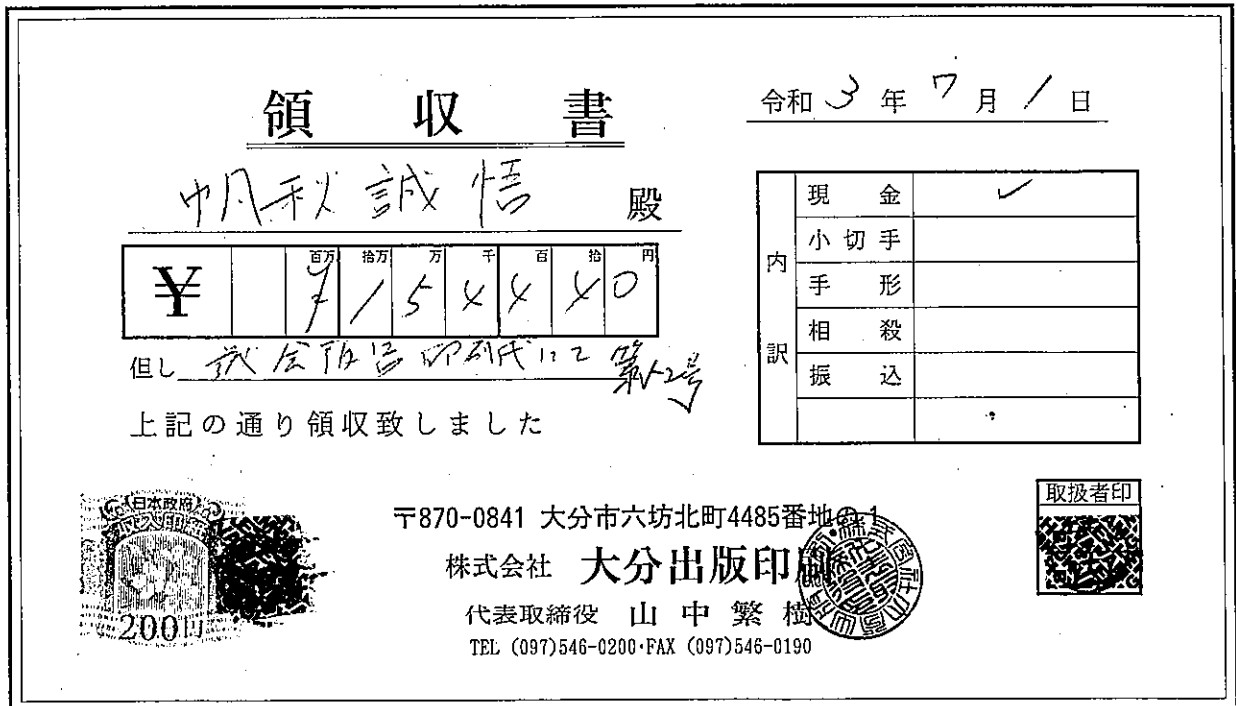 領収書
令和3年7月1日
帆秋誠悟 殿
¥ 百万 拾万 万 千 百 拾 円
¥154440
但し 議会報告印刷代にて
上記の通り領収致しました
内訳
現金 ✓
小切手
手形
相殺
振込
日本政府
200円
取扱者印
〒870-0841 大分市六坊北町4485番地の1
株式会社 大分出版印刷
代表取締役 山中繁樹
TEL (097)546-0200・FAX (097)546-0190